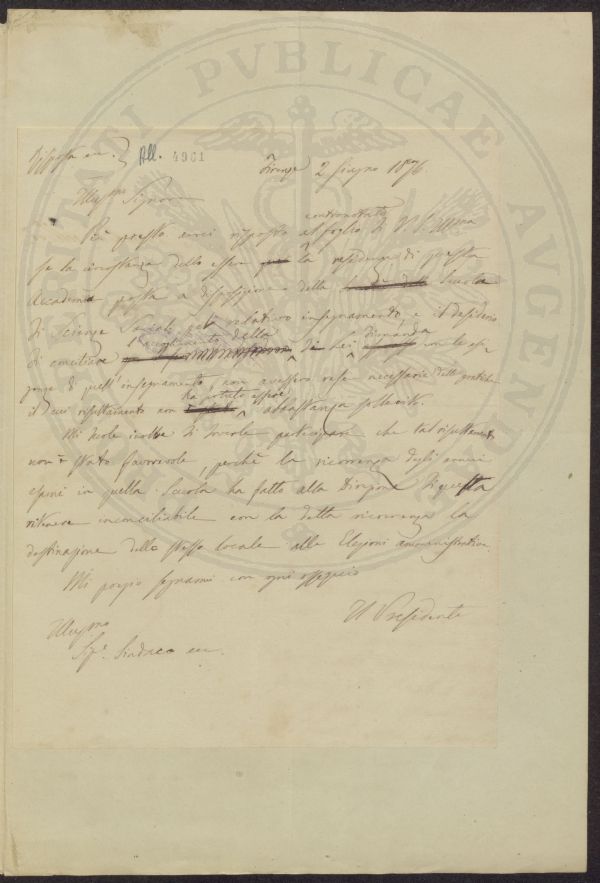 PROSPERITATI PVBLICAE AVGENDAE
Risposta
All. 4961
Firenze 2 Giugno 1876.
Illmo Signore
Più presto avrei risposto al foglio controcitato di V. S. Illma
se la circostanza dello essere la residenza di questa
Accademia posta a disposizione della Scuola
di Scienze Sociali pel relativo insegnamento e il desiderio
di conciliare l'accoglimento della di Lei dimanda con le esi-
genze di quell'insegnamento, non avessero rese necessarie delle pratiche
il cui risultamento non ha potuto essere abbastanza sollecito.
Mi duole inoltre di doverle partecipare che tal risultamento
non è stato favorevole, perchè la ricorrenza degli annui
esami in quella Scuola ha fatto alla Direzione di questa
ritenere inconciliabile con la detta ricorrenza la
destinazione dello stesso locale alle Elezioni amministrative
Mi pregio segnarmi con ogni ossequio
Il Presidente
Illusmo
Sigr. Sindaco